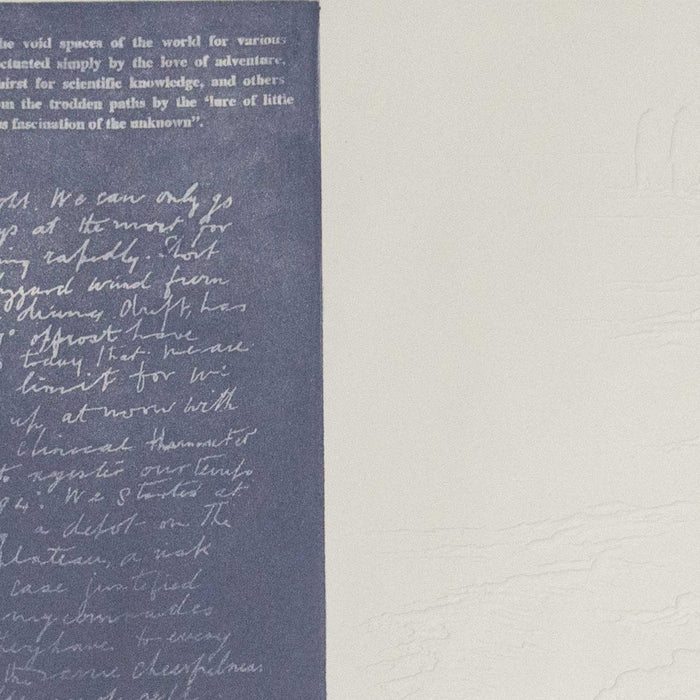 he void spaces of the world for various
ctuated simply by the love of adventure,
hirst for scientific knowledge, and others
om the trodden paths by the "lure of little
s fascination of the unknown".
We can only go
at the most for
rapidly. Short
wind from
drift, has
of frost have
today that. We are
limit for
up, at noon with
clinical thermometer
register our temps
94°. We started at
a depot on the
plateau, a risk
case justified
my comrades
they have to every
the same cheerfulness